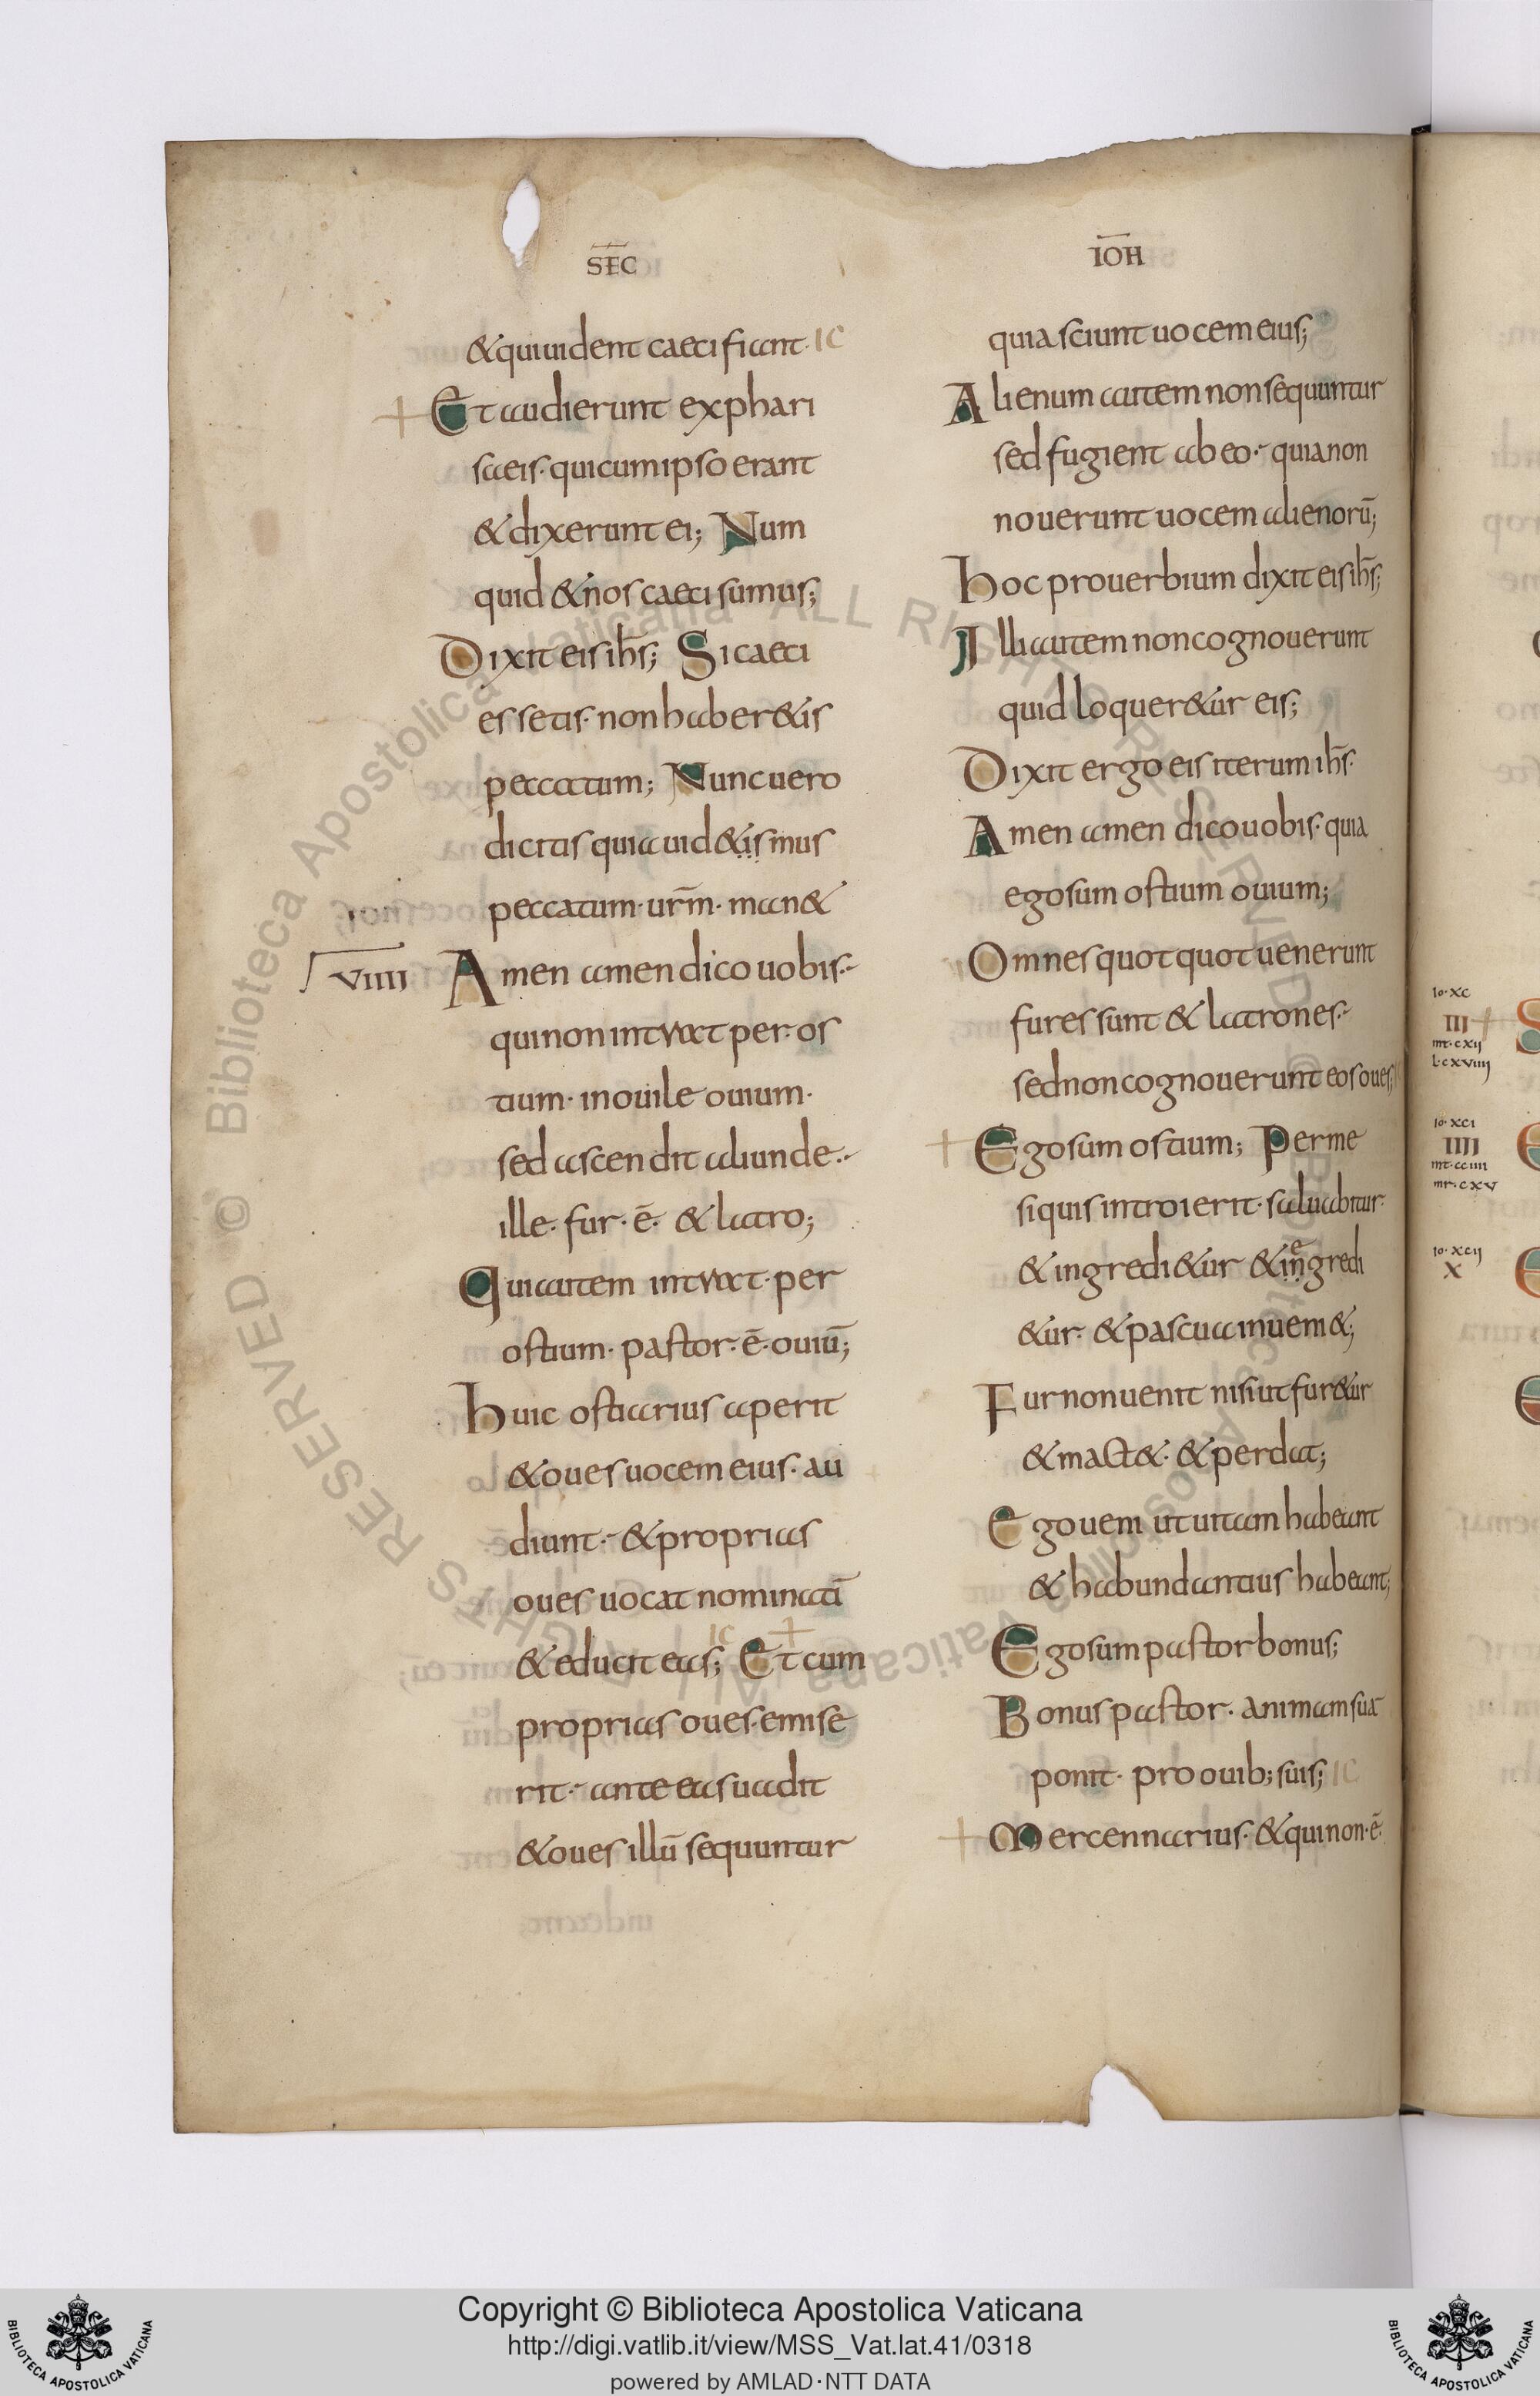 SEC̅
IOH̅
&quiuident caeci fiant· IC
Et audierunt exphari
saeis· quicumipso erant
&dixerunt ei; Num
quid &nos caeci sumus;
Dixit eis ih̅s; Si caeci
essetis· non haber&is
peccatum; Nunc uero
dicitis quia uid&ismus
peccatum· ur̅m· man&
VIIII Amen amen dico uobis·
qui non intrat per· os
tium· in ouile ouium·
sed ascendit aliunde·
ille· fur· ē· & latro;
Qui autem intrat· per
ostium· pastor· ē· ouiū;
Huic ostiarius aperit
&oues uocem eius· au
diunt· &proprias
oues uocat nominatī
&educit eas; IC + Et cum
proprias oues· emise
rit· ante eas uadit
&oues illū sequuntur
quia sciunt uocem eius;
Alienum autem non sequuntur
sed fugient ab eo· quia non
nouerunt uocem alienorū;
Hoc prouerbium dixit eis ih̅s;
Illi autem non cognouerunt
quid loquer&ur eis;
Dixit ergo eis iterum ih̅s·
Amen amen dico uobis· quia
ego sum ostium ouium;
Omnes quotquot uenerunt
fures sunt & latrones·
sed non cognouerunt eos oues;
+ Ego sum ostium; Per me
si quis introierit· saluabitur·
&ingredi&ur &inegredi
&ur· &pascua inuem&;
Fur non uenit nisi ut fur&ur
&mact&· &perdat;
Ego ueni ut uitam habeant
& habundantius habeant;
Ego sum pastor bonus;
Bonus pastor· animam suā
ponit· pro ouib; suis; IC
+ Mercennarius· &qui non· ē·
IO·XC
III
MT·CXII
L·CXVIIII
IO·XCI
IIII
MR·CXV
IO·XCII
X
Copyright © Biblioteca Apostolica Vaticana
http://digi.vatlib.it/view/MSS_Vat.lat.41/0318
powered by AMLAD·NTT DATA
BIBLIOTECA APOSTOLICA VATICANA
BIBLIOTECA APOSTOLICA VATICANA